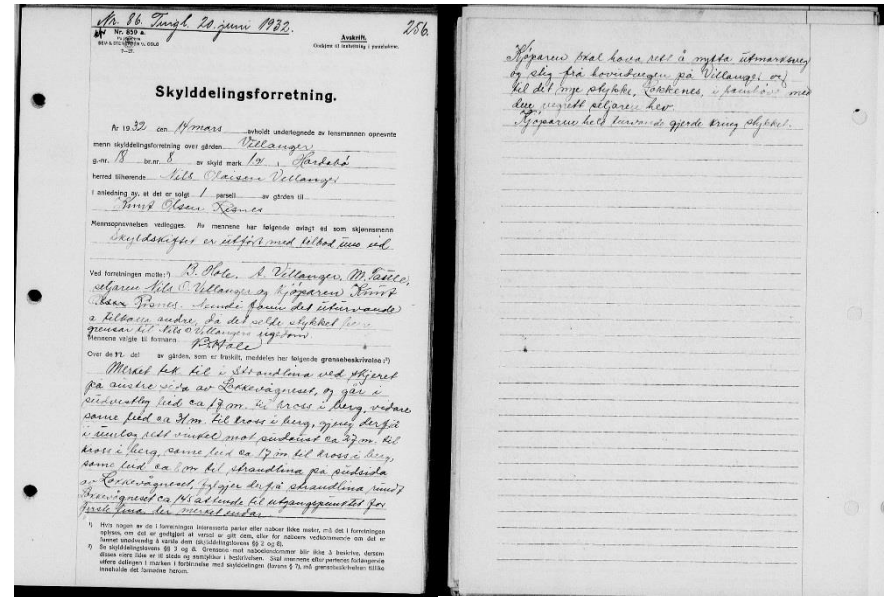 Nr. 86. Tingl. 20. juni 1932.
256.
Nr. 859 a.
Avskrift.
Skylddelingsforretning.
År 1932 den 14 mars avholdt undertegnede av lensmannen opnevnte
menn skylddelingsforretning over gården Villanger
g.-nr. 18 br.nr. 8 av skyld mark i Hordabø
herred tilhørende Nils Olaisen Villanger
I anledning av, at det er solgt 1 parsell av gården til
Knut Olsen Risnes
Mennsopnevnelsen vedlegges. Av mennene har følgende avlagt ed som skjønnsmenn
Skyldskiftet er utført med tilbod um ed
Ved forretningen møtte: B. Hole, A. Villanger, M.
seljaren Nils O. Villanger og kjøparen Knut
Risnes. Nemdi fann det uturvande
å tilkalla andre, då det selde stykket
grensar til Nils O. Villangers eigedom.
Mennene valgte til formann B. Hole
Over de del av gården, som er fraskilt, meddeles her følgende grensebeskrivelse:
Merket tek til i strandlina ved skjeret
på austre sida av Løkkevågneset, og går i
sudvestleg leid ca 17 m. til kross i berg, vidare
same leid ca 31 m. til kross i berg, gjeng derfrå
i umlag rett vinkel mot sudaust ca 27 m. til
kross i berg, same leid ca 17 m. til kross i berg,
same leid ca 8 m. til strandlina på sudsida
av Løkkevågneset, fylgjer derfrå strandlina rundt
Løkkevågneset ca 145 attende til utgangspunktet for
fyrste lina der merket endar.
¹) Hvis nogen av de i forretningen interesserte parter eller naboer ikke møter, må det i forretningen
oplyses, om det er godtgjort at varsel er gitt dem, eller for naboers vedkommende om det er
funnet unødvendig å varsle dem (skylddelingslovens §§ 2 og 8).
²) Se skylddelingslovens §§ 3 og 8. Grensene mot naboeiendommer blir ikke å beskrive, dersom
disses eiere ikke er til stede og samtykker i beskrivelsen. Skal mennene efter partenes forlangende
utføre delingen i marken i forbindelse med skylddelingen (lovens § 7), må grensebeskrivelsen tillike
inneholde det fornødne herom.
Kjøparen skal hava rett å nytta utmarksveg
og stig frå hovudvegen på Villanger og
til det nye stykke, Løkkenes, i samhøve med
den vegrett seljaren hev.
Kjøparen held turvande gjerde kring stykket.